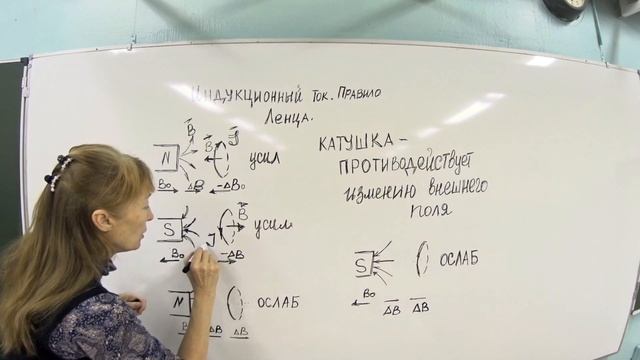 Индукционный ток. Правило
Ленца.
КАТУШКА –
ПРОТИВОДЕЙСТВУЕТ
изменению внешнего
поля
B
N B J усил
B₀ ΔB -ΔB₀
S B усил
J
B₀ -ΔB
N ОСЛАБ
B ΔB ΔB
S ОСЛАБ
B₀ ΔB ΔB